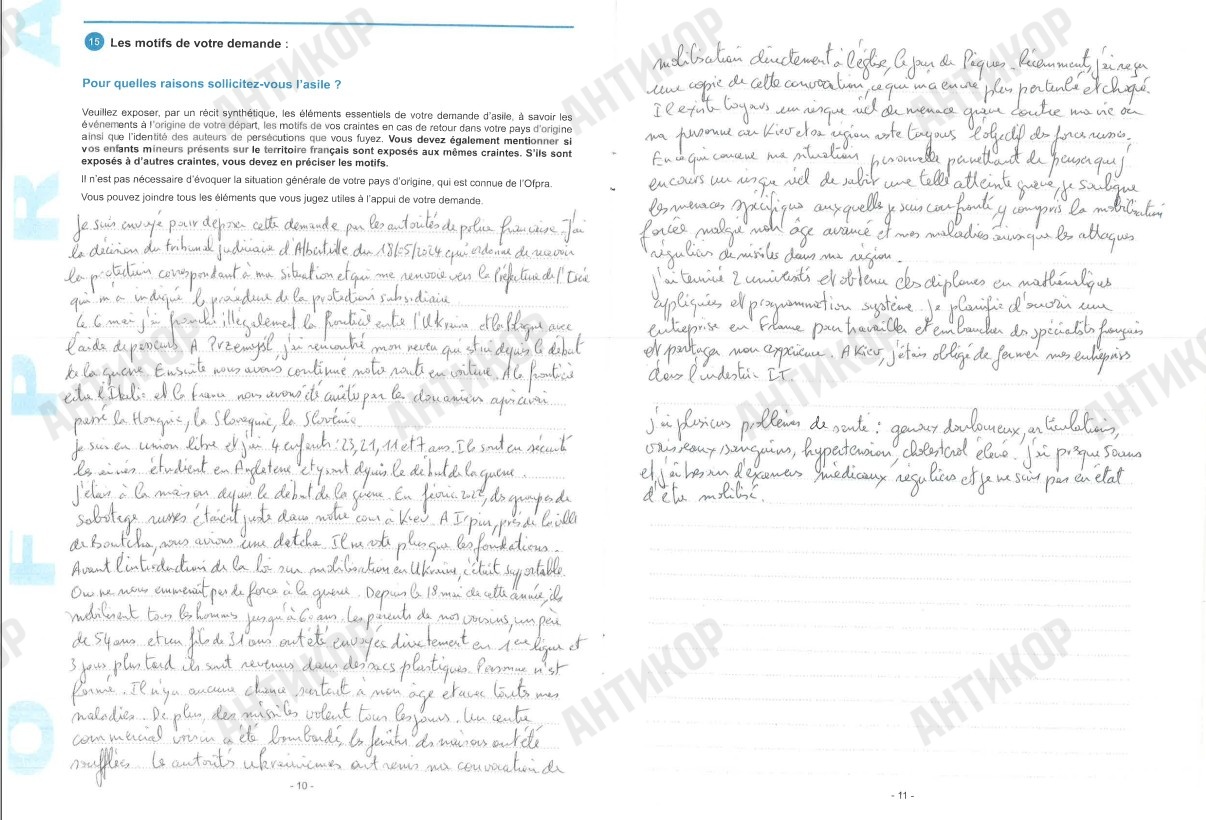 OFPRA
15 Les motifs de votre demande :
Pour quelles raisons sollicitez-vous l'asile ?
Veuillez exposer, par un récit synthétique, les éléments essentiels de votre demande d'asile, à savoir les
événements à l'origine de votre départ, les motifs de vos craintes en cas de retour dans votre pays d'origine
ainsi que l'identité des auteurs de persécutions que vous fuyez. Vous devez également mentionner si
vos enfants mineurs présents sur le territoire français sont exposés aux mêmes craintes. S'ils sont
exposés à d'autres craintes, vous devez en préciser les motifs.
Il n'est pas nécessaire d'évoquer la situation générale de votre pays d'origine, qui est connue de l'Ofpra.
Vous pouvez joindre tous les éléments que vous jugez utiles à l'appui de votre demande.
Je suis envoyé pour déposer cette demande par les autorités de police française. J'ai
la décision du tribunal judiciaire d'Albertville du 18/05/2024 qui ordonne de recevoir
la protection correspondant à ma situation et qui me renvoie vers la Préfecture de l'Isère
qui m'a indiqué la procédure de la protection subsidiaire.
Le 6 mai j'ai franchi illégalement la frontière entre l'Ukraine et la Pologne avec
l'aide de passeurs. A Przemysl, j'ai rencontré mon neveu qui est ici depuis le début
de la guerre. Ensuite nous avons continué notre route en voiture. A la frontière
entre l'Italie et la France nous avons été arrêtés par les douaniers après avoir
passé la Hongrie, la Slovaquie, la Slovénie
Je suis en union libre et j'ai 4 enfants : 23, 21, 11 et 7 ans. Ils sont en sécurité
les aînés étudient en Angleterre et y sont depuis le début de la guerre.
J'étais à la maison depuis le début de la guerre. En février 2022, des groupes de
sabotage russes étaient juste dans notre cour à Kiev. A Irpin, près de la ville
de Boutcha, nous avions une datcha. Il ne reste plus que les fondations.
Avant l'introduction de la loi sur mobilisation en Ukraine, c'était supportable.
On ne nous emmenait pas de force à la guerre. Depuis le 18 mai de cette année, ils
mobilisent tous les hommes jusqu'à 60 ans. Les parents de nos voisins, un père
de 54 ans et un fils de 31 ans ont été envoyés directement en 1ère ligne et
3 jours plus tard ils sont revenus dans des sacs plastiques. Personne n'est
formé. Il n'y a aucune chance surtout à mon âge et avec toutes mes
maladies. De plus, des missiles volent tous les jours. Un centre
commercial voisin a été bombardé, les fenêtres des maisons ont été
soufflées. Les autorités ukrainiennes ont remis ma convocation de
- 10 -
mobilisation directement à l'église, le jour de Pâques. Récemment, j'ai reçu
une copie de cette convocation, ce qui m'a encore plus perturbé et choqué.
Il existe toujours un risque réel de menace grave contre ma vie ou
ma personne car Kiev et sa région reste toujours l'objectif des forces russes.
En ce qui concerne ma situation personnelle permettant de penser que j'
encours un risque réel de subir une telle atteinte grave, je souligne
les menaces spécifiques auxquelles je suis confronté, y compris la mobilisation
forcée malgré mon âge avancé et mes maladies ainsi que les attaques
régulières de missiles dans ma région.
J'ai terminé 2 universités et obtenu des diplômes en mathématiques
appliquées et programmation système. Je planifie d'ouvrir une
entreprise en France pour travailler et embaucher des spécialistes français
et partager mon expérience. A Kiev, j'étais obligé de fermer mes entreprises
dans l'industrie IT.
j'ai plusieurs problèmes de santé : genoux douloureux, articulations,
vaisseaux sanguins, hypertension, cholestérol élevé. J'ai presque 50 ans
et j'ai besoin d'examens médicaux réguliers et je ne suis pas en état
d'être mobilisé.
- 11 -
АНТИКОР